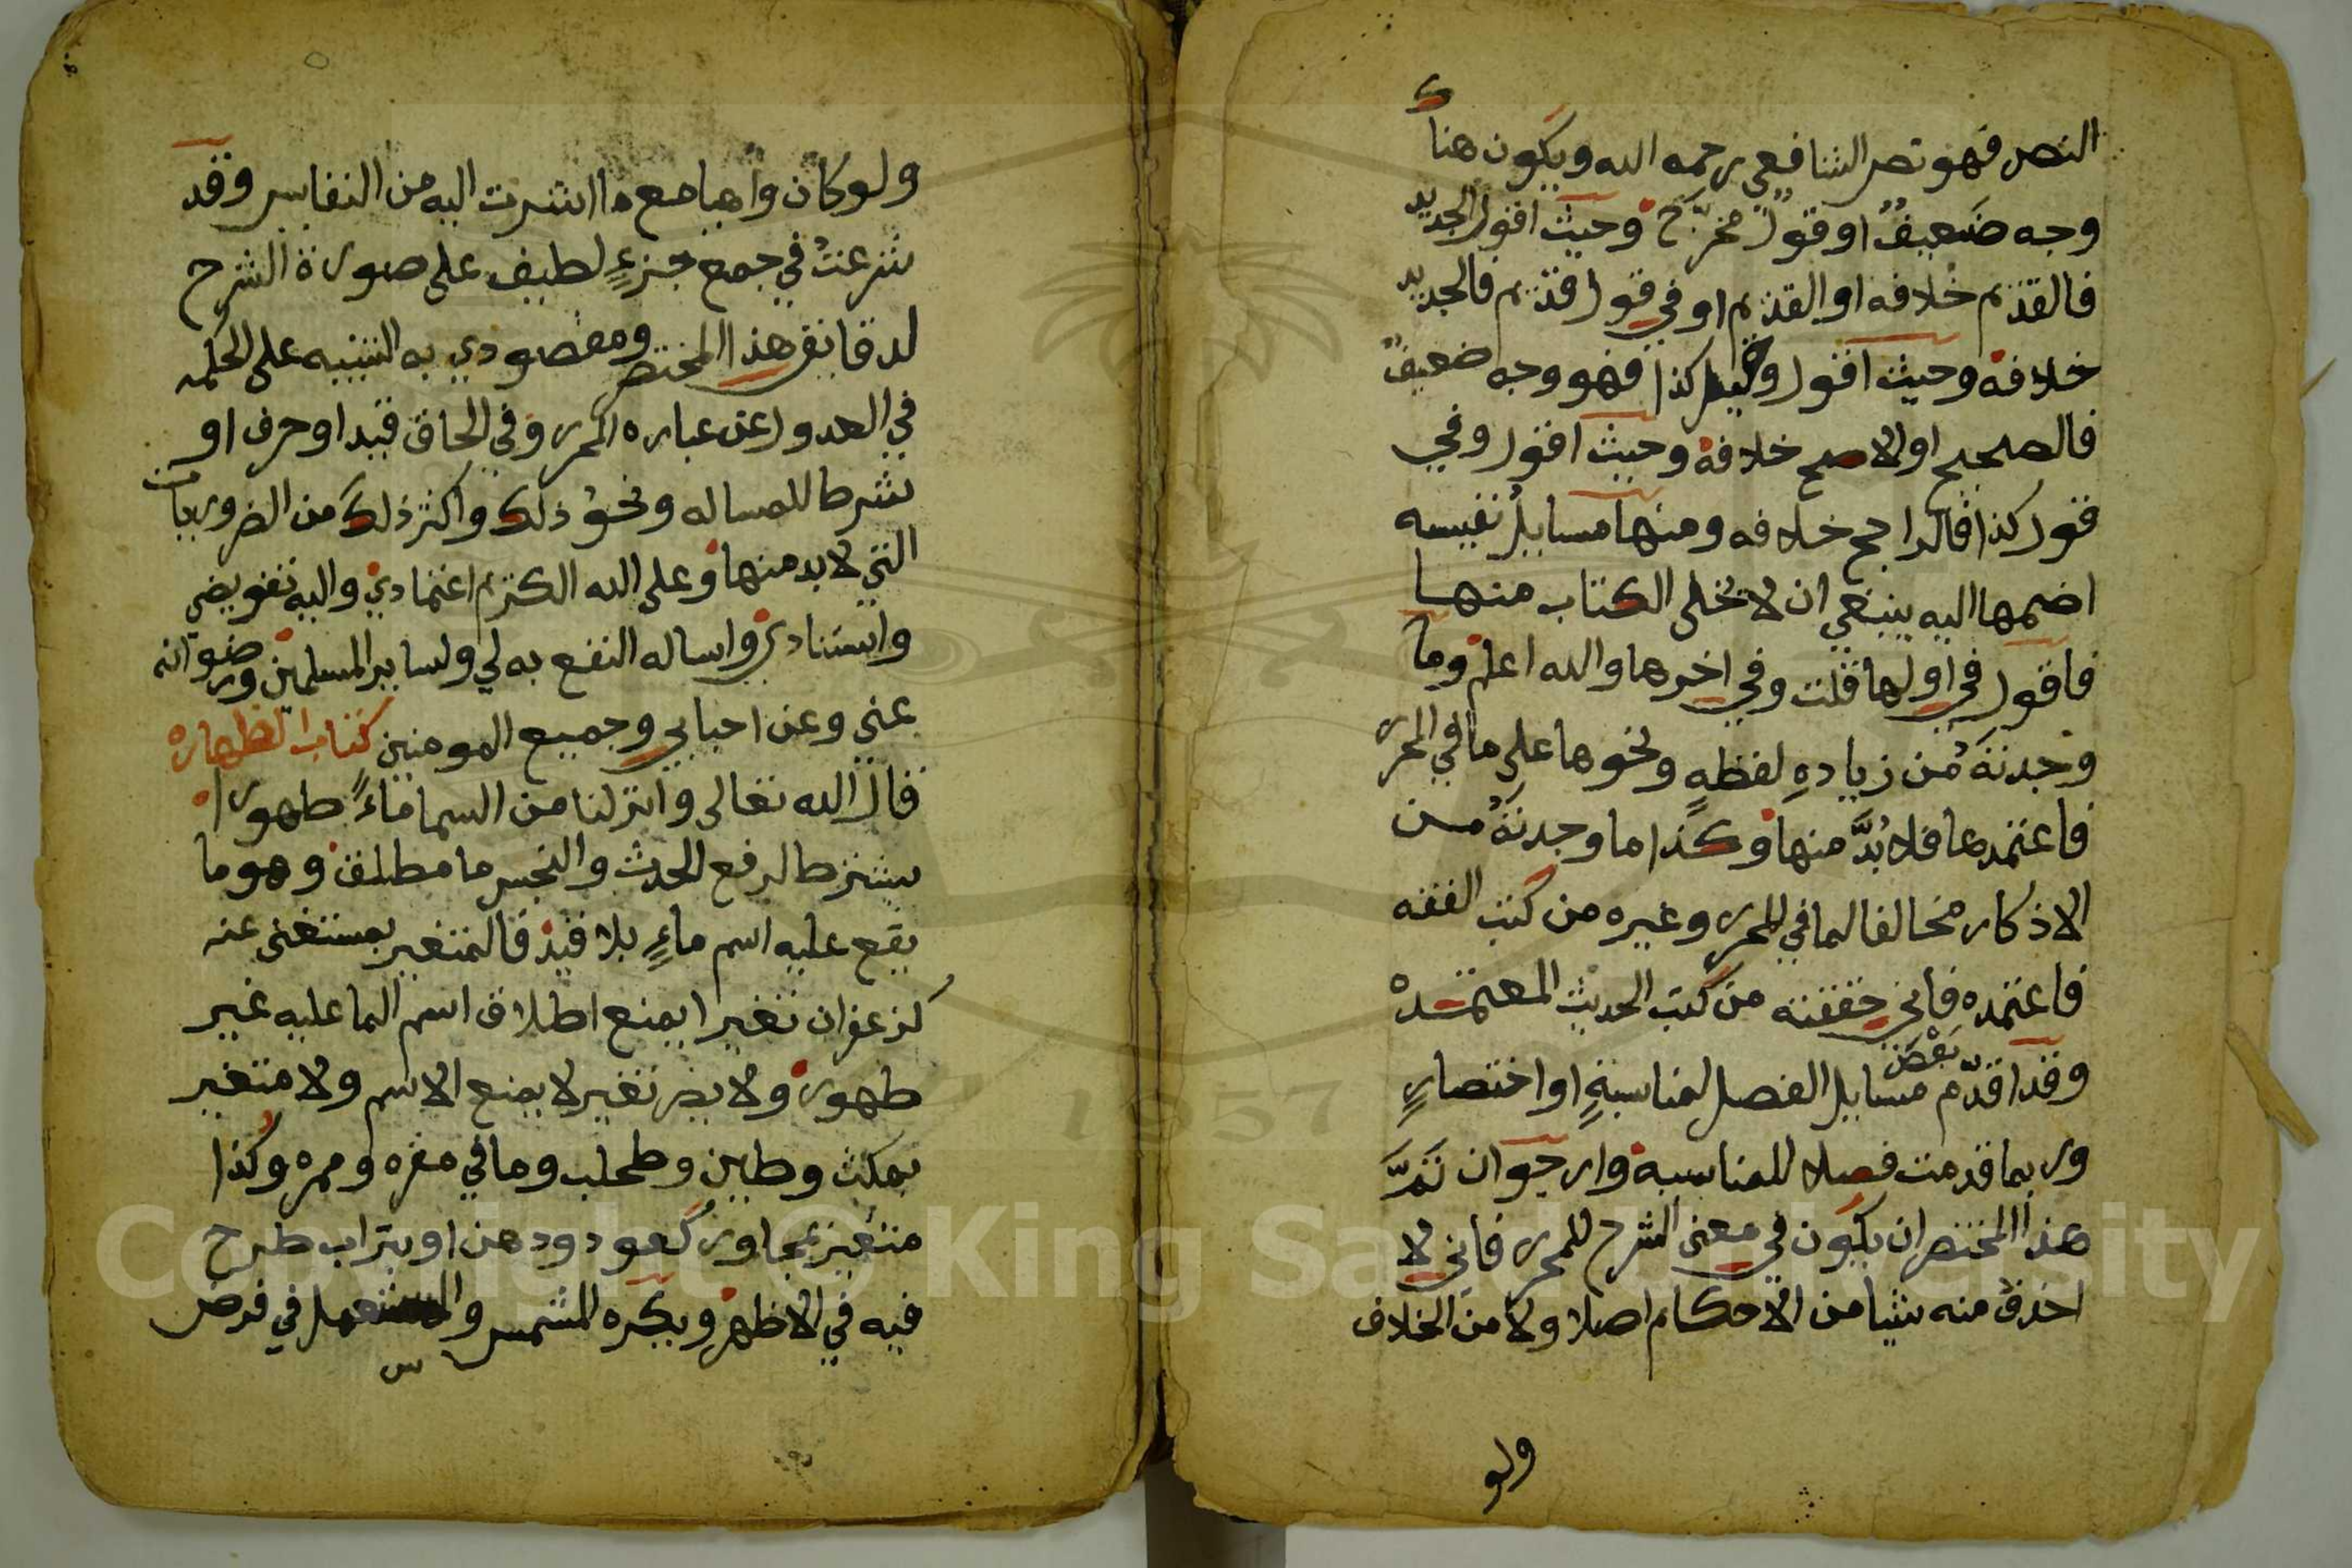 النص فهو نص الشافعي رحمه الله ويكون هناك
وجه ضَعِيفٌ او قولٌ مخرَّج وحيث اقول الجديد
فالقديم خلافه او القديم او في قول قديم فالجديد
خلافه وحيث اقول وقيل كذا فهو وجه ضعيفٌ
فالصحيح او الاصح خلافه وحيث اقول وفي
قول كذا فالراجح خلافه ومنها مسايلُ نفيسه
اضمها اليه ينبغي ان لا يخلى الكتاب منها
فاقول في اولها قلت وفي اخرها والله اعلم وما
وجدتَهُ من زيادهِ لفظهٍ ونحوها على ما في المحرر
فاعتمدها فلا بُدَّ منها وكذا ما وجدتَهُ من
الاذكار مخالفا لما في المحرر وغيره من كتب الفقه
فاعتمده فاني حققته من كتب الحديث المعتمده
وقد اقدّم بَعْضَ مسايل الفصل لمناسبةٍ او اختصارٍ
وربما قدمت فصلا للمناسبة وارجوا ان تَمَّ
هذا المختصر ان يكون في معنى الشرح للمحرر فاني لا
احذف منه شيا من الاحكام اصلا ولا من الخلاف
ولو
ولو كان واهيا مع ما اشرت اليه من النفايس وقد
شرعتُ في جمع جزءٍ لطيف على صورة الشرح
لدقايق هذا المختصر ومقصودي به التنبيه على الحكمه
في العدول عن عباره المحرر وفي الحاق قيد او حرف او
شرط للمساله ونحوُ ذلك واكثر ذلك من الضروريات
التي لا بد منها وعلى الله الكريم اعتمادي واليه تفويضي
واستنادي واساله النفع به لي ولساير المسلمين ورضوانه
عني وعن احبابي وجميع المومنين كتاب الطهاره
قال الله تعالى وانزلنا من السما ماءً طهورا
يشترط لرفع الحدث والنجس ما مطلق وهو ما
يقع عليه اسم ماءٍ بلا قيد فالمتغير بمستغنى عنه
كزعفران تغيرا يمنع اطلاق اسم الما عليه غير
طهور ولا يضر تغير لا يمنع الاسم ولا متغير
بمكث وطين وطحلب وما في مقره وممره وكذا
متغير بمجاور كعود ودهن او بتراب طرح
فيه في الاظهر ويكره المشمس والمستعمل في فرض
Copyright © King Saud University
1957